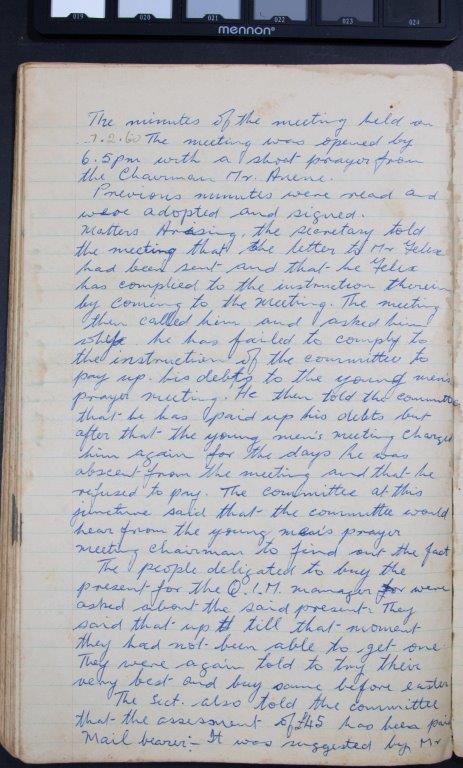 019 020 021 022 023 024
mennon®
The minutes of the meeting held on
7.2.60 The meeting was opened by
6.5pm with a short prayer from
the Chairman Mr.
Previous minutes were read and
were adopted and signed.
Matters Arising, the secretary told
the meeting that the letter to Mr Felix
had been sent and that he Felix
has complied to the instruction therein
by coming to the meeting. The meeting
then called him and asked him
why he has failed to comply to
the instruction of the committee to
pay up his debts to the young men's
prayer meeting. He then told the committee
that he has paid up his debts but
after that the young men's meeting charged
him again for the days he was
abscent from the meeting and that he
refused to pay. The committee at this
juncture said that the committee would
hear from the young men's prayer
meeting chairman to find out the fact
The people deligated to buy the
present for the Q.I.M. manager were
asked about the said present. They
said that up till that moment
they had not been able to get one
They were again told to try their
very best and buy same before easter
The Sect. also told the committee
that the assesment of £45 has been paid
Mail bearer:- It was suggested by Mr